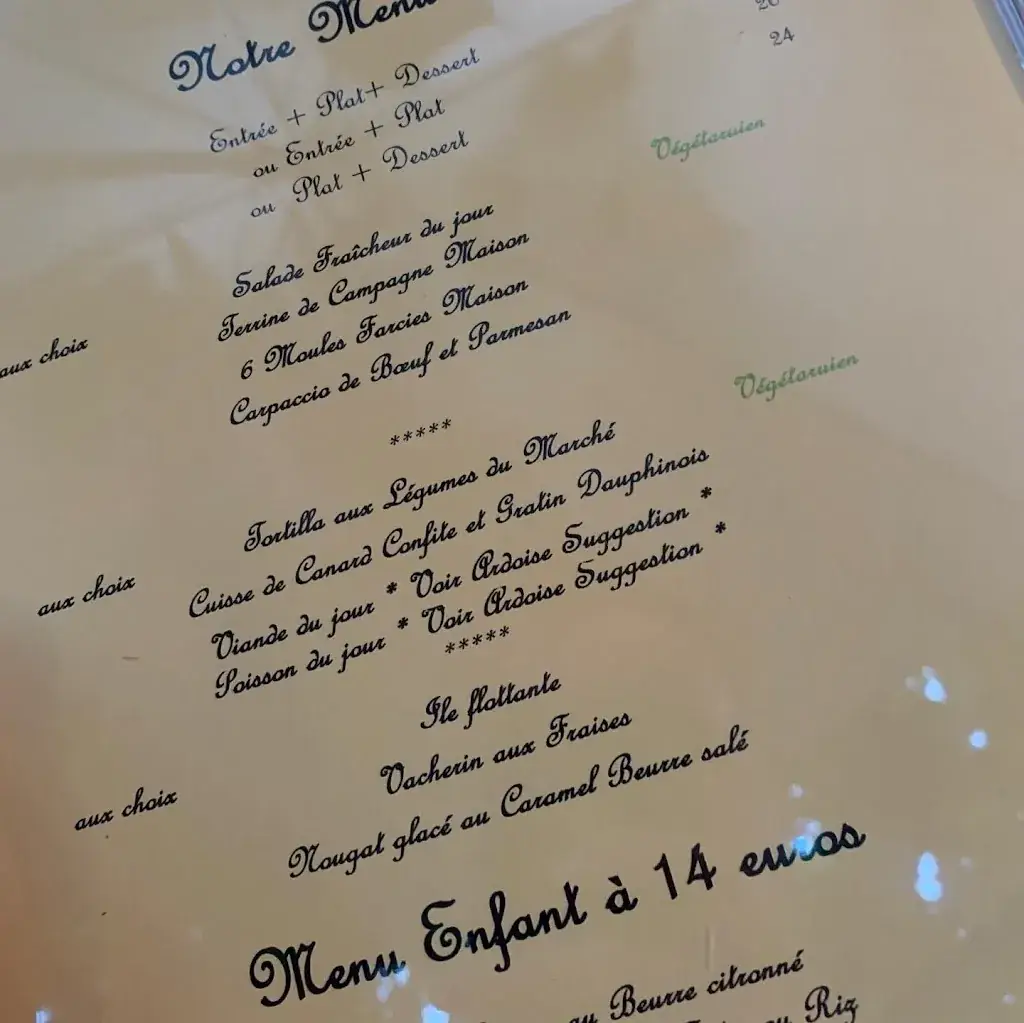 Notre Menu
Entrée + Plat+ Dessert
ou Entrée + Plat 24
ou Plat + Dessert
Salade Fraîcheur du jour Végétaruien
Terrine de Campagne Maison
aux choix 6 Moules Farcies Maison
Carpaccio de Bœuf et Parmesan
*****
Tortilla aux Légumes du Marché Végétaruien
Cuisse de Canard Confite et Gratin Dauphinois
aux choix Viande du jour * Voir Ardoise Suggestion *
Poisson du jour * Voir Ardoise Suggestion *
*****
Ile flottante
aux choix Vacherin aux Fraises
Nougat glacé au Caramel Beurre salé
Menu Enfant à 14 euros
au Beurre citronné
au Riz